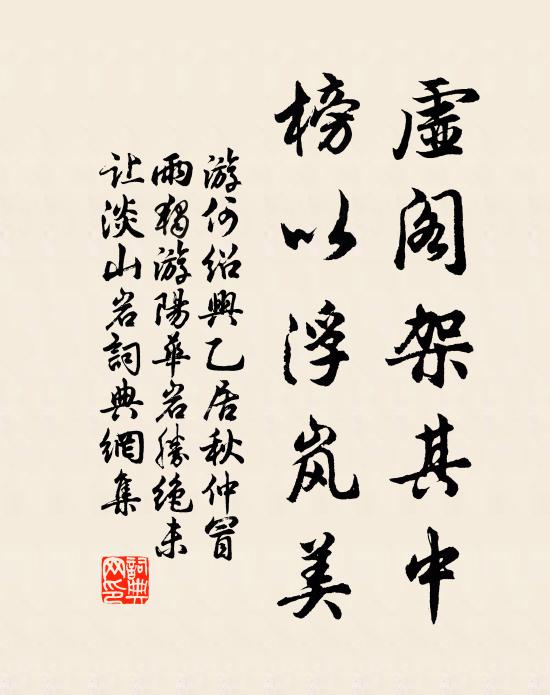 虛阁架其中
榜以浮岚美
游何绍興乙居秋仲冒
雨獨游陽華岩勝绝未
让淡山岩詞典網集
詞典网印